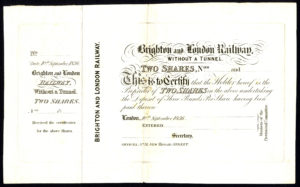 No.
10th September, 1836.
Brighton and London
RAILWAY,
Without a Tunnel.
TWO SHARES.
No.
Received the certificates
for the above Shares.
BRIGHTON AND LONDON RAILWAY.
Brighton and London Railway,
WITHOUT A TUNNEL.
TWO SHARES, Nos. and
This is to Certify that the Holder hereof is the
Proprietor of TWO SHARES in the above undertaking
the Deposit of Three Pounds Per Share having been
paid thereon
London, 10th September 1836.
ENTERED
Secretary.
Members of the
Provisional Committee